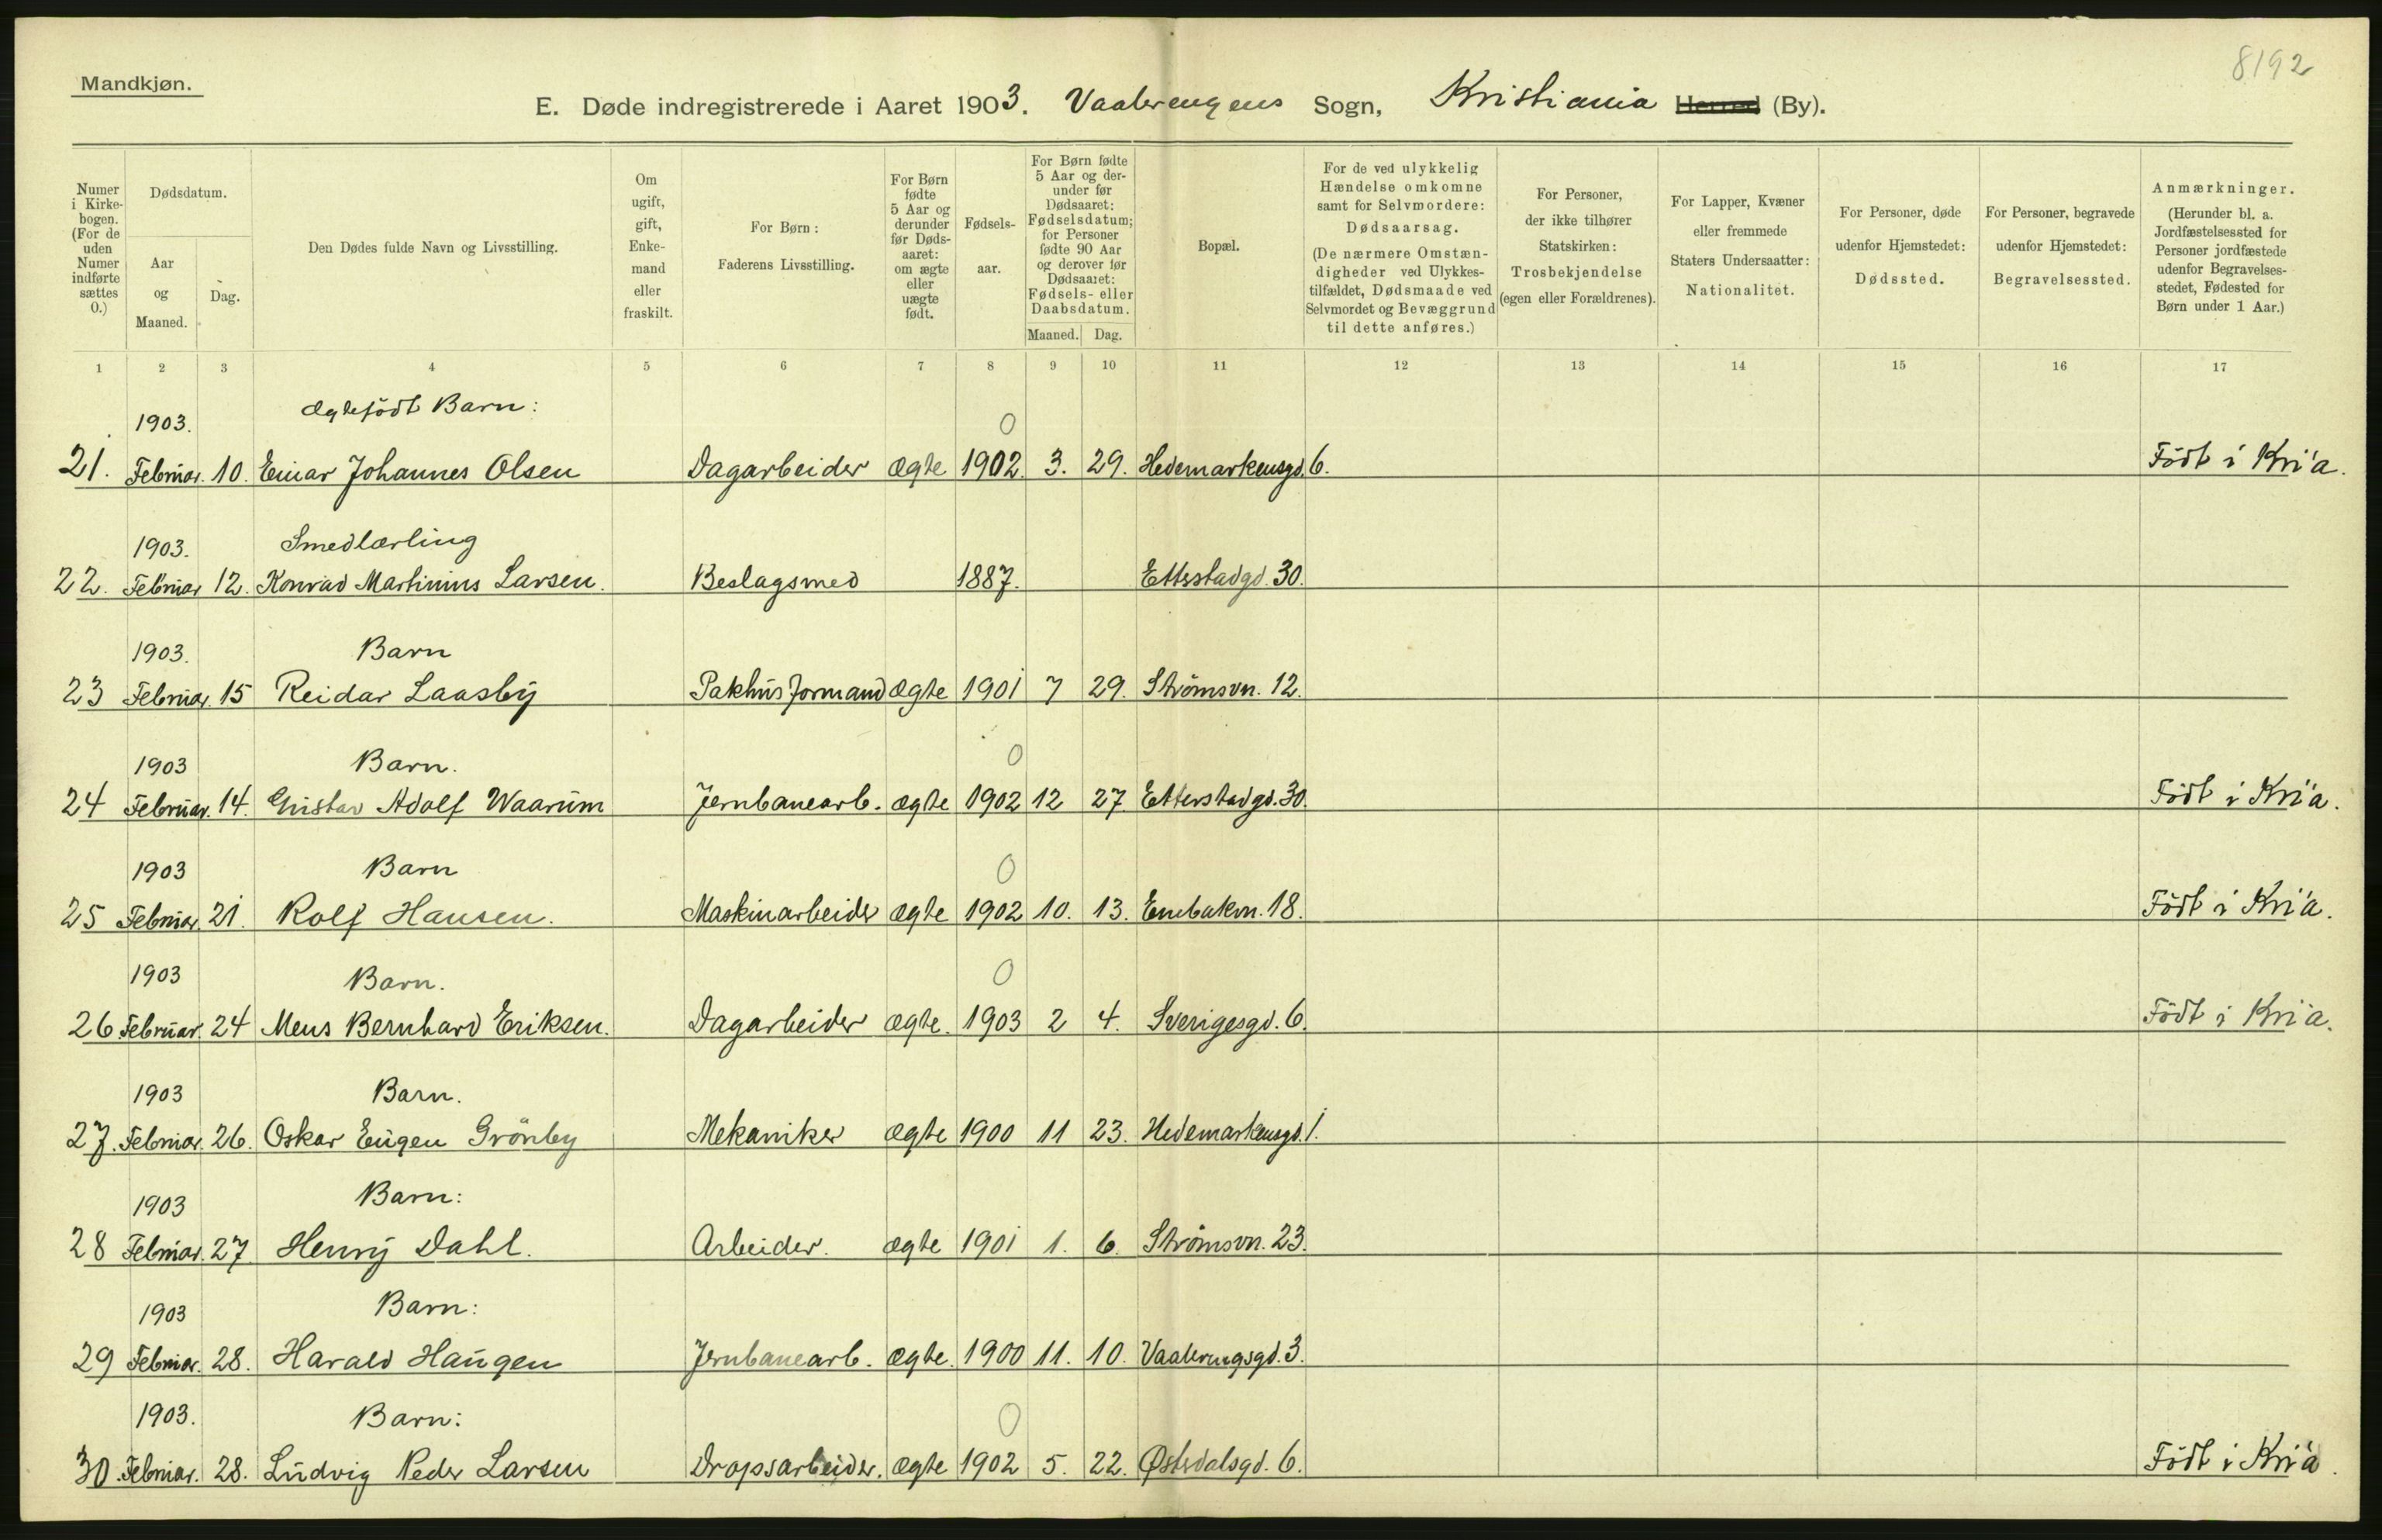 8192
Mandkjøn.
E. Døde indregistrerede i Aaret 1903. Vaalerengens Sogn, Kristiania Herred (By).
Numer i Kirke-bogen. (For de uden Numer indførte sættes 0.)
Dødsdatum.
Aar og Maaned.
Dag.
Den Dødes fulde Navn og Livsstilling.
Om ugift, gift, Enke-mand eller fraskilt.
For Børn: Faderens Livsstilling.
For Børn fødte 5 Aar og derunder før Døds-aaret: om ægte eller uægte født.
Fødsels-aar.
For Børn fødte 5 Aar og der-under før Dødsaaret: Fødselsdatum; for Personer fødte 90 Aar og derover før Dødsaaret: Fødsels- eller Daabsdatum.
Maaned. Dag.
Bopæl.
For de ved ulykkelig Hændelse omkomne samt for Selvmordere: Dødsaarsag. (De nærmere Omstæn-digheder ved Ulykkes-tilfældet, Dødsmaade ved Selvmordet og Bevæggrund til dette anføres.)
For Personer, der ikke tilhører Statskirken: Trosbekjendelse (egen eller Forældrenes).
For Lapper, Kvæner eller fremmede Staters Undersaatter: Nationalitet.
For Personer, døde udenfor Hjemstedet: Dødssted.
For Personer, begravede udenfor Hjemstedet: Begravelsessted.
Anmærkninger. (Herunder bl. a. Jordfæstelsessted for Personer jordfæstede udenfor Begravelses-stedet, Fødested for Børn under 1 Aar.)
1 2 3 4 5 6 7 8 9 10 11 12 13 14 15 16 17
1903. Ægtefödt Barn: 0
21. Februar. 10. Einar Johannes Olsen Dagarbeider ægte 1902. 3. 29. Hedemarkensgd. 6. Födt i Kri'a.
1903. Smedlærling
22. Februar 12. Konrad Martinius Larsen. Beslagsmed 1887. Etterstadgd. 30.
1903. Barn
23 Februar. 15 Reidar Laasby Pakhusformand ægte 1901 7 29. Strömsvn. 12.
1903 Barn. 0
24 Februar. 14. Gustav Adolf Waarum Jernbanearb. ægte 1902 12 27 Etterstadgd. 30. Födt i Kri'a.
1903 Barn 0
25 Februar. 21. Rolf Hansen. Maskinarbeider ægte 1902 10. 13. Enebakvn. 18. Födt i Kri'a.
1903 Barn. 0
26. Februar. 24 Mens Bernhard Eriksen. Dagarbeider ægte. 1903 2 4. Sverigesgd. 6. Födt i Kri'a.
1903 Barn.
27. Februar. 26. Oskar Eugen Grönby Mekaniker ægte 1900 11 23. Hedemarkensgd. 1.
1903 Barn:
28 Februar. 27 Henry Dahl. Arbeider. ægte 1901 1. 6. Strömsvn. 23.
1903 Barn:
29 Februar. 28. Harald Haugen Jernbanearb. ægte. 1900 11. 10. Vaalerengsgd. 3.
1903. Barn: 0
30. Februar. 28. Ludvig Peder Larsen Dropsarbeider. ægte 1902 5. 22. Østerdalsgd. 6. Födt i Kri'a.